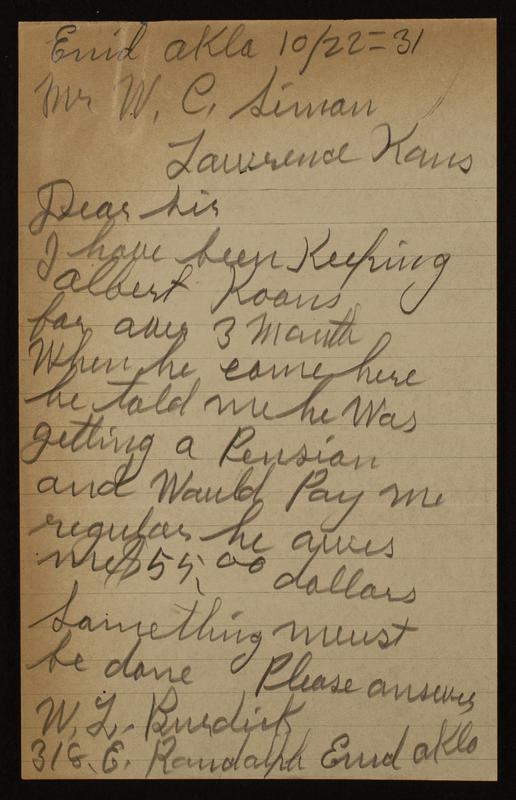 Enid Okla 10/22=31
Mr W. C. Simon
Lawrence Kans
Dear Sir
I have been Keeping
Albert Koons
for over 3 Month
When he come here
he told me he Was
getting a Pension
and Would Pay me
regular he owes
me $55.00 dollars
Something meust
be done Please answer
W. L. Burdick
318. E. Randolph Enid Okla